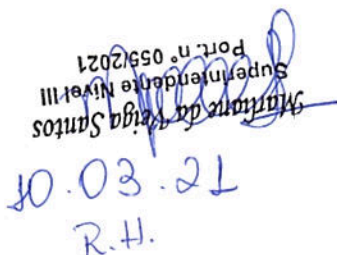 Marliane da Veiga Santos
Superintendente Nivel III
Port. n° 055/2021
10.03.21
R.H.